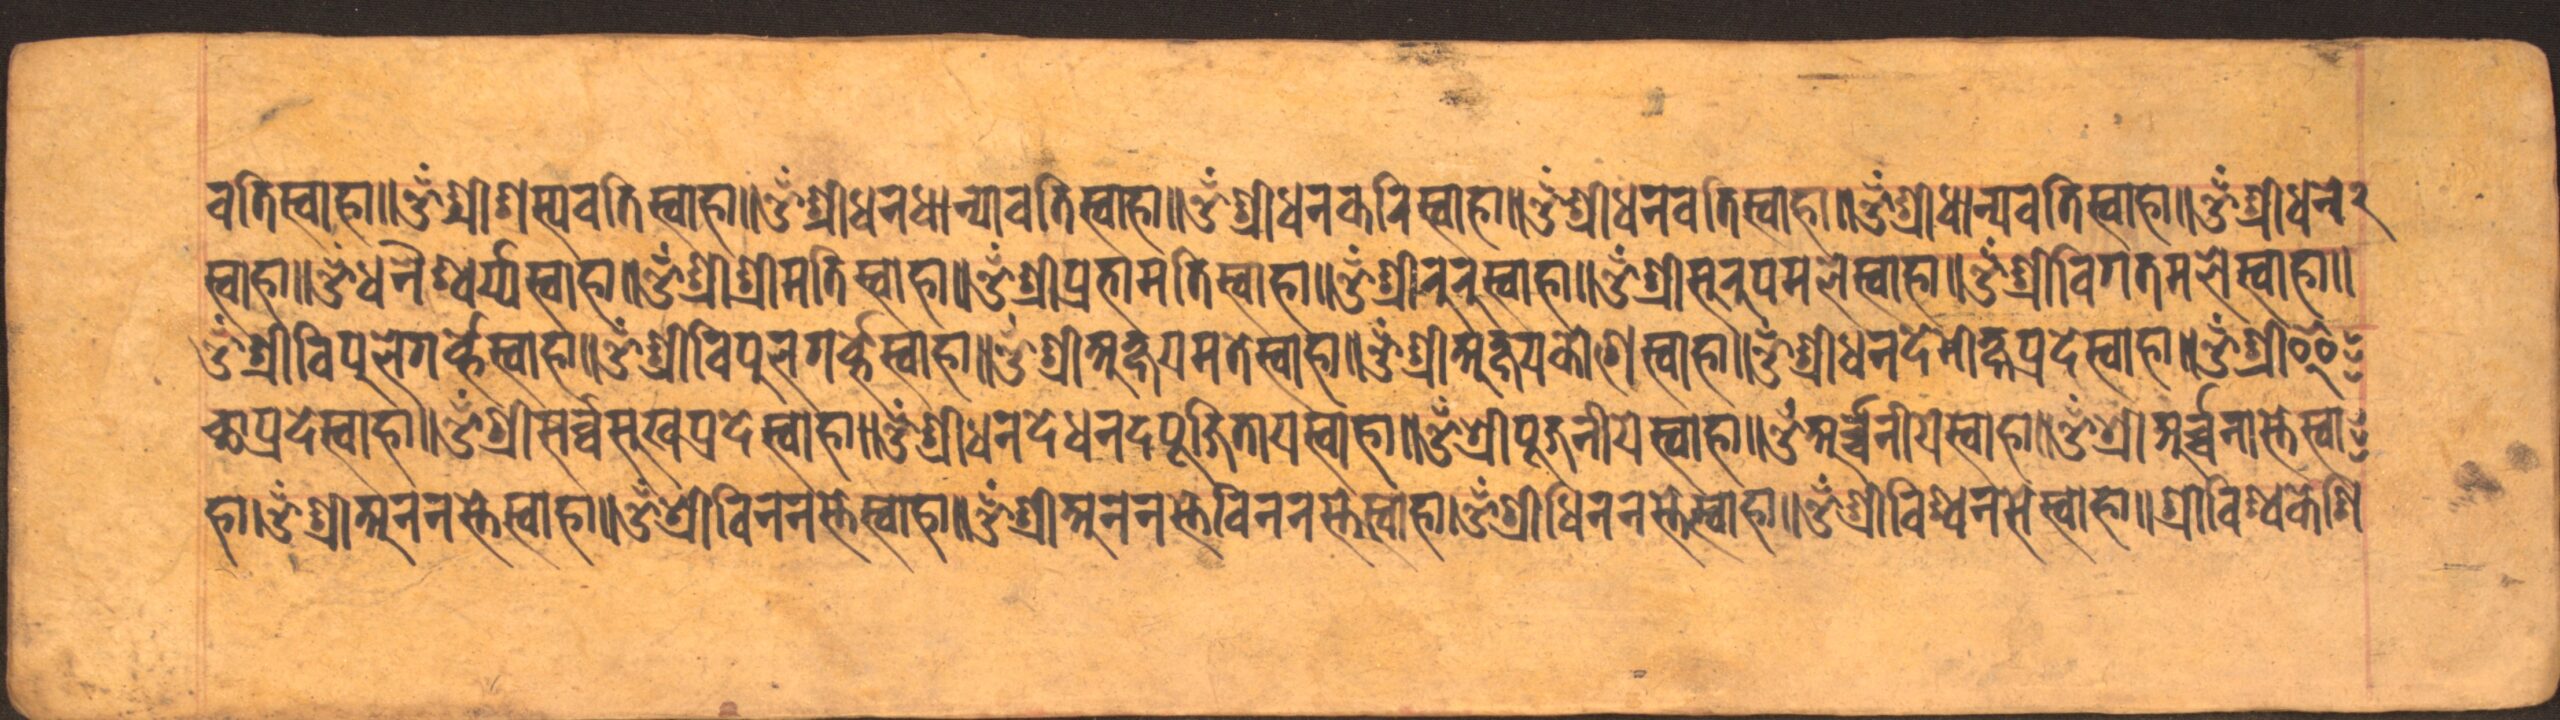 वतिस्वाहा॥ ॐश्रीशस्यवतिस्वाहा॥ ॐश्रीधनधान्यावतिस्वाहा॥ ॐश्रीधनकरिस्वाहा॥ ॐश्रीधनवतिस्वाहा॥ ॐश्रीधान्यवतिस्वाहा॥ ॐश्रीधने२
स्वाहा॥ ॐधनैश्वर्य्यस्वाहा॥ ॐश्रीश्रीमतिस्वाहा॥ ॐश्रीप्रभामतिस्वाहा॥ ॐश्रीरुरुस्वाहा॥ ॐश्रीसुरुपमलेस्वाहा॥ ॐश्रीविगतमलेस्वाहा॥
ॐश्रीविपुलेगर्ब्भेस्वाहा॥ ॐश्रीविपुलगर्ब्भेस्वाहा॥ ॐश्रीअक्षयमतेस्वाहा॥ ॐश्रीअक्षयकोशेस्वाहा॥ ॐश्रीधनदेमोक्षप्रदेस्वाहा॥ ॐश्री
प्रदेस्वाहा॥ ॐश्रीसर्व्वसुखप्रदेस्वाहा॥ ॐश्रीधनदेधनदपूजितायस्वाहा॥ ॐश्रीपूजनीयेस्वाहा॥ ॐअर्च्चनीयेस्वाहा॥ ॐश्रीअर्च्चनास्तेस्वा
हा। ॐश्रीअननस्तेस्वाहा॥ ॐश्रीविननस्तेस्वाहा॥ ॐश्रीअननस्तेविननस्तेस्वाहा। ॐश्रीधिननस्तेस्वाहा॥ ॐश्रीविश्वनसेस्वाहा॥ श्रीविश्वकेशि